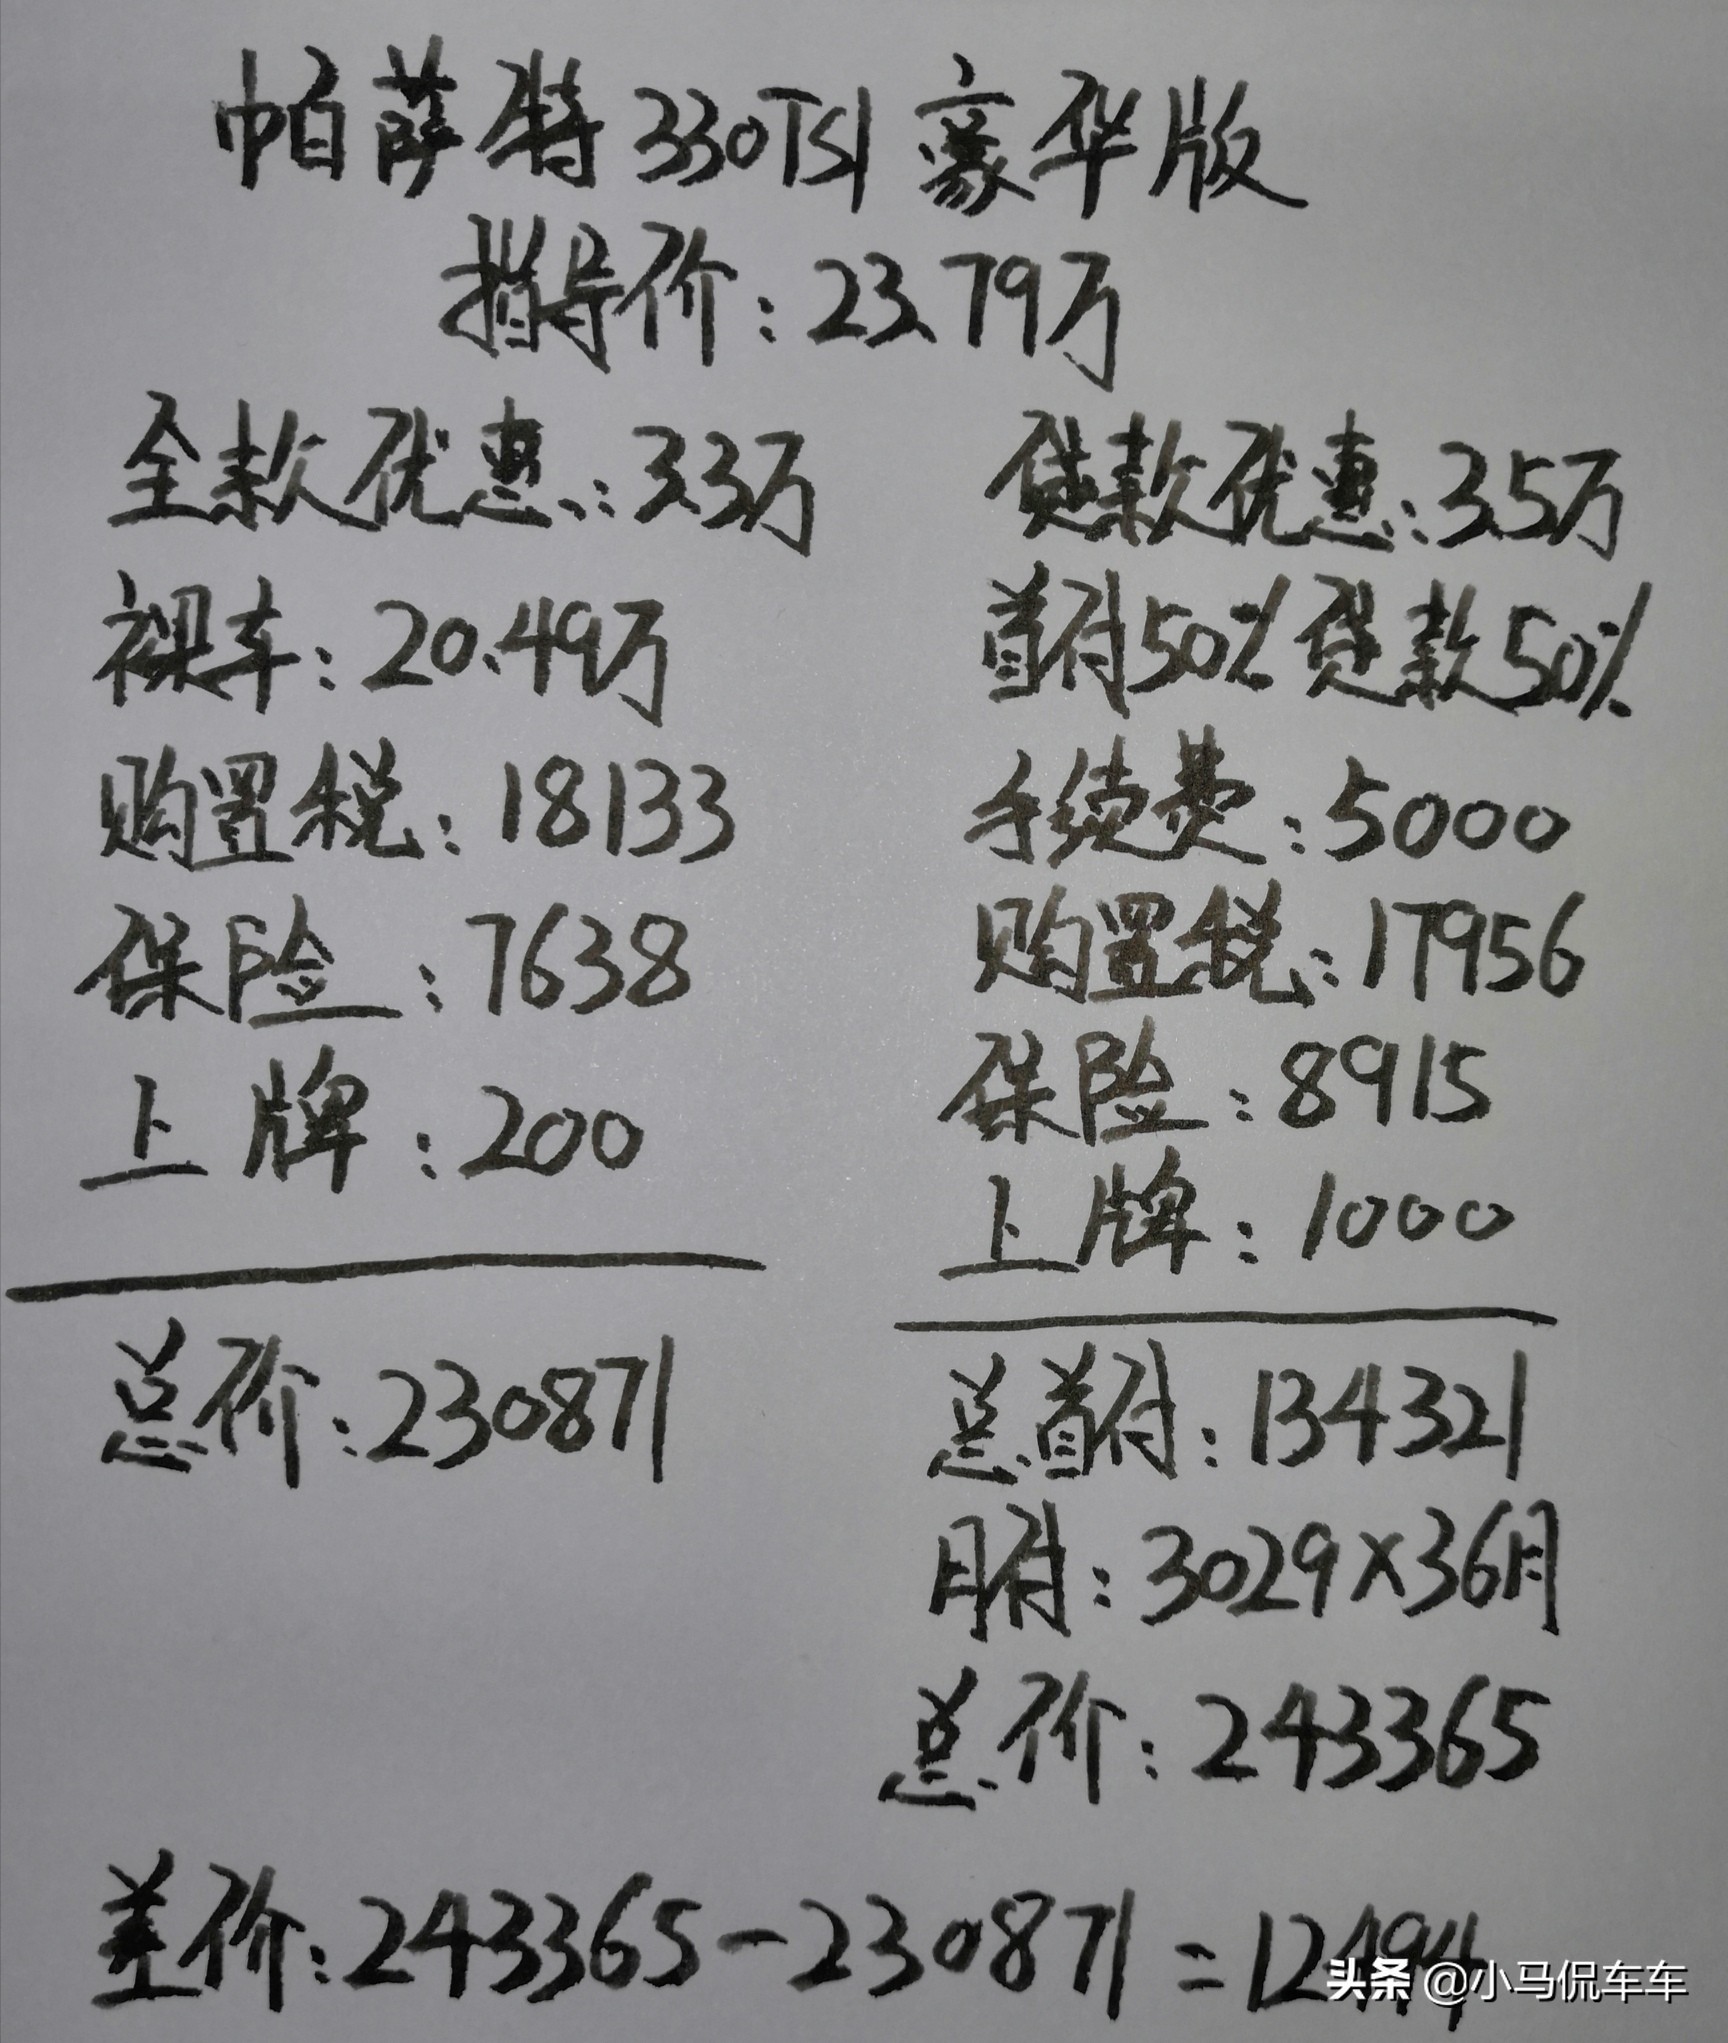 帕萨特330TSI豪华版
指导价:23.79万
全款优惠:3.3万
裸车:20.49万
购置税:18133
保险:7638
上牌:200
总价:230871
贷款优惠:3.5万
首付50%贷款50%
手续费:5000
购置税:17956
保险:8915
上牌:1000
总首付:134321
月付:3029×36月
总价:243365
差价:243365-230871=12494
头条@小马侃车车